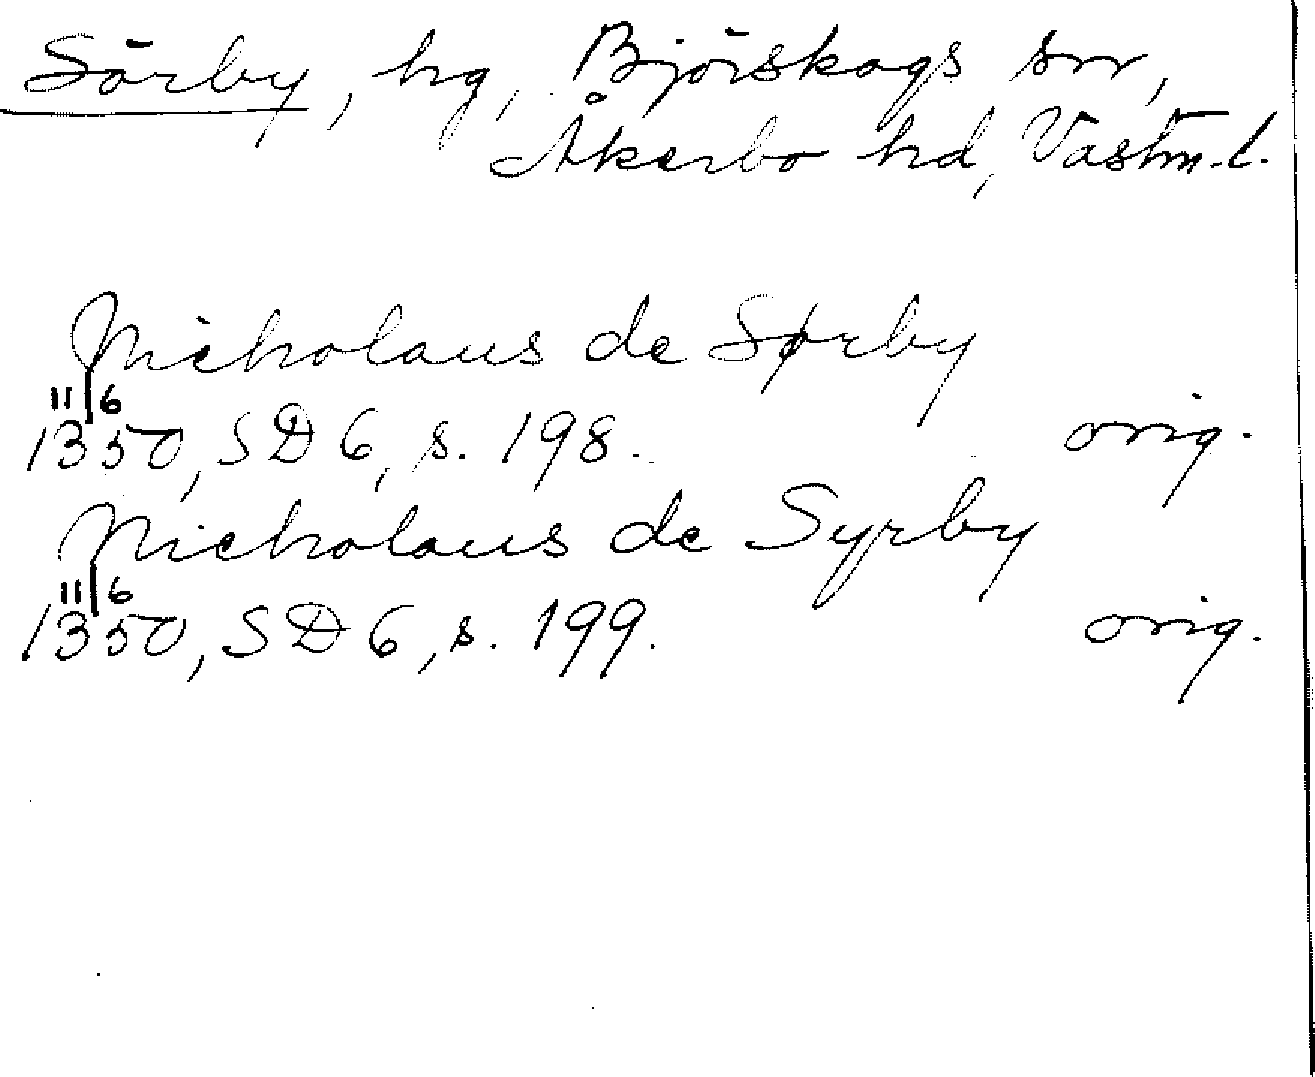 Sörby, hg, Björskogs sn,
Åkerbo hd, Västm. l.
Nicholaus de Sørby
11/6
1350, SD 6, s. 198. orig.
Nicholaus de Syrby
11/6
1350, SD 6, s. 199. orig.